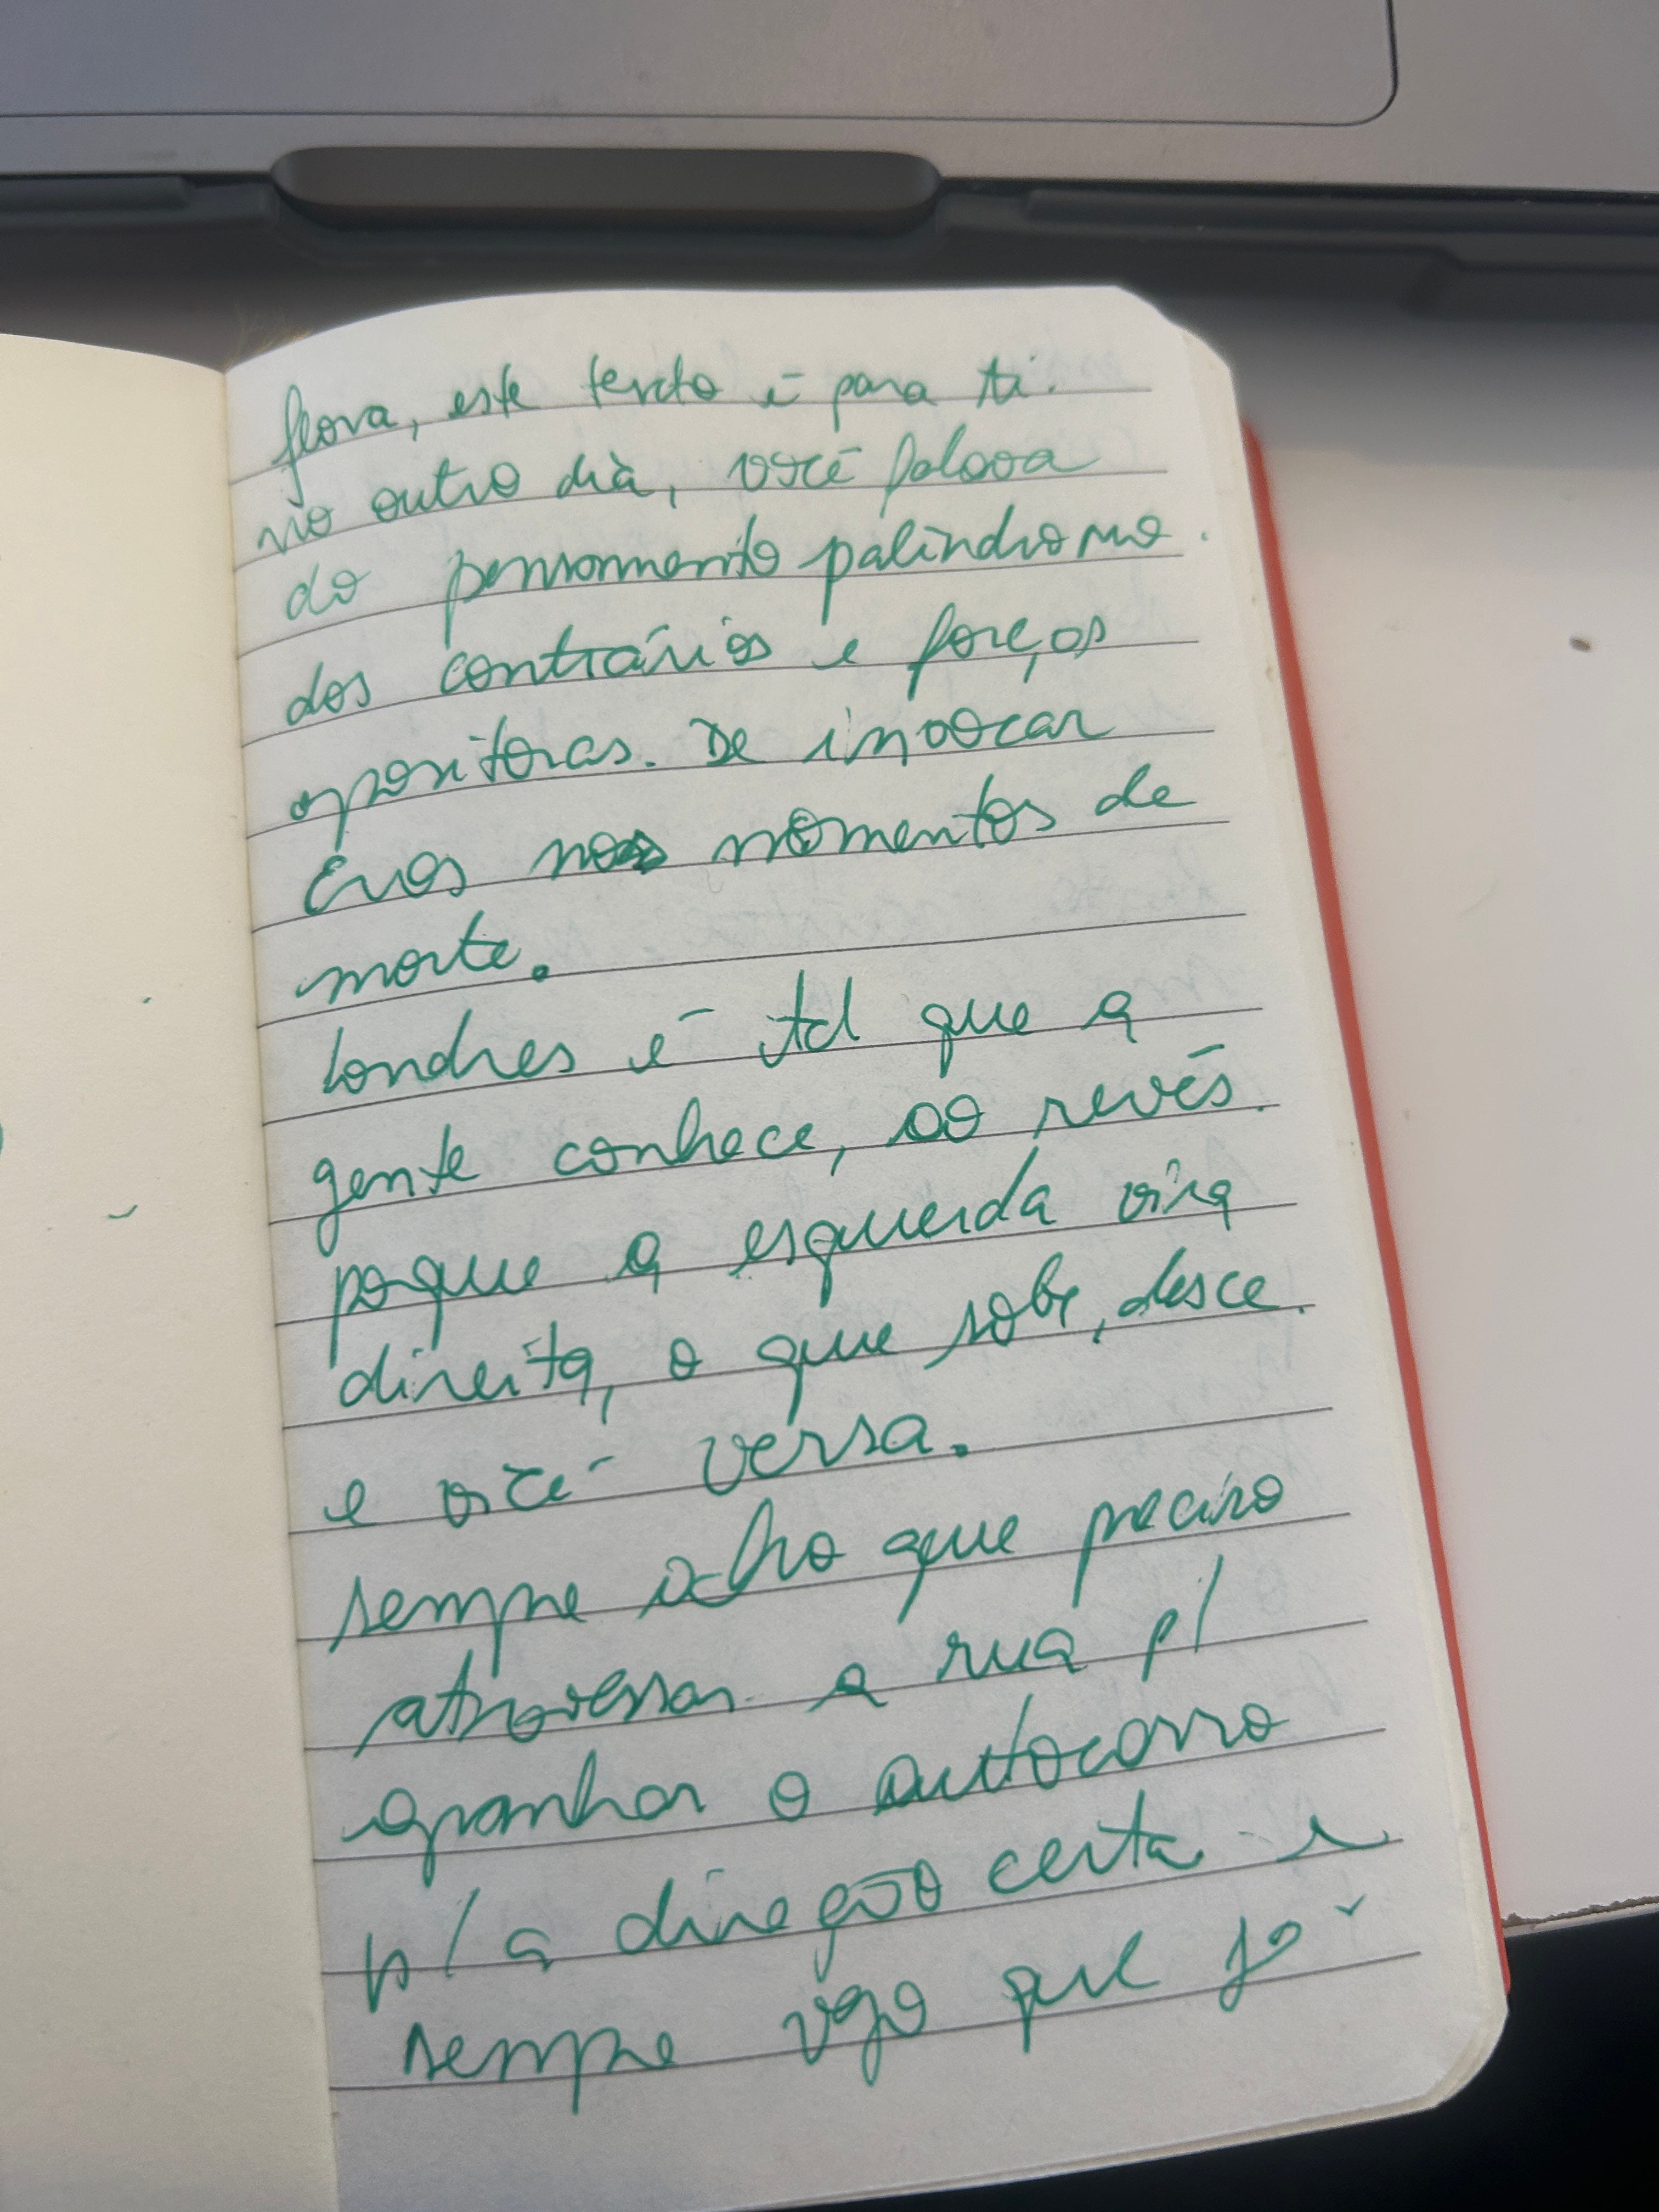 flora, este texto é para ti.
no outro dia, você falava
do pensamento palíndromo.
dos contrários e forças
opositoras. De invocar
Eros nos momentos de
morte.
Londres é tal que a
gente conhece, ao revés.
poque a esquerda vira
direita, o que sobe, desce.
e vice versa.
sempre acho que preciso
atravessar a rua p/
apanhar o autocarro
p/ a direção certa e
sempre vejo que já